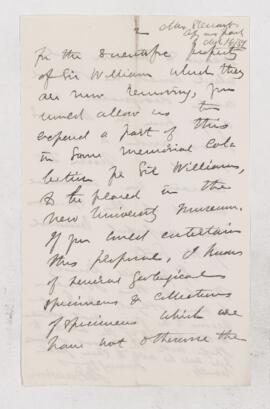 2
for the Scientific property
of Sir William which they
are now removing, you
would allow us to
expend a part of this
in some memorial Col-
lection for Sir William,
to be placed in the
new University Museum.
If you would entertain
this proposal, I know
of several Geological
specimens & collections
of specimens which we
have not otherwise the